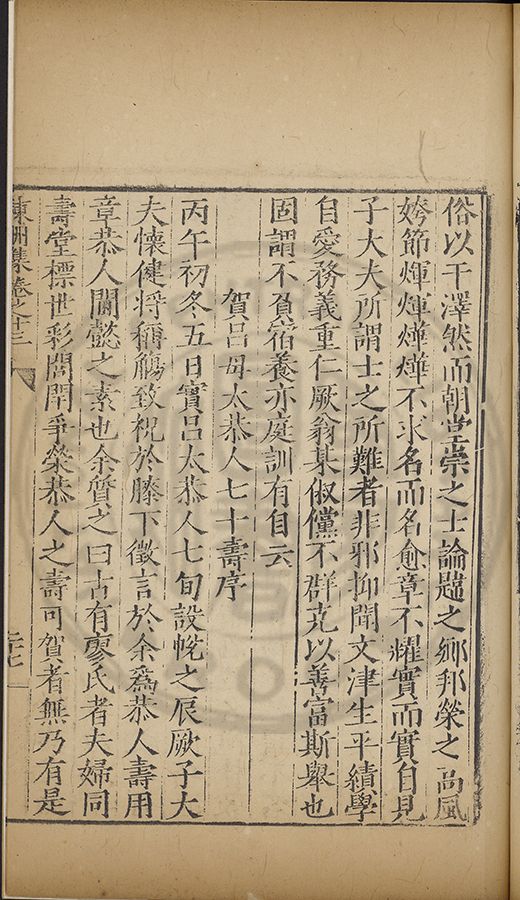 俗以干澤然而朝堂崇之士論韙之鄉邦榮之高風
姱節煇煇燁燁不求名而名愈章不耀實而實自見
子大夫所謂士之所難者非邪抑聞文津生平績學
自愛務義重仁厥翁某俶儻不群克以善富斯舉也
固謂不負宿養亦庭訓有自云
賀呂母太恭人七十壽序
丙午初冬五日實呂太恭人七旬設帨之辰厥子大
夫懷健將稱觴致祝於膝下徵言於余為恭人壽用
章恭人閫懿之素也余質之曰古有廖氏者夫婦同
壽堂標世彩閭閈爭榮恭人之壽可賀者無乃有是
東洲集卷之十三